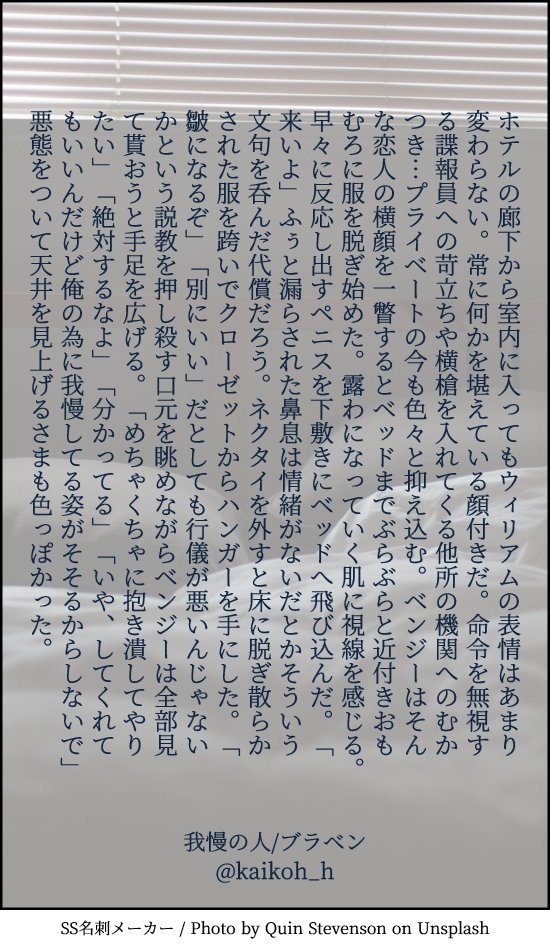 ホテルの廊下から室内に入ってもウィリアムの表情はあまり
変わらない。常に何かを堪えている顔付きだ。命令を無視す
る諜報員への苛立ちや横槍を入れてくる他所の機関へのむか
つき…プライベートの今も色々と抑え込む。ベンジーはそん
な恋人の横顔を一瞥するとベッドまでぶらぶらと近付きおも
むろに服を脱ぎ始めた。露わになっていく肌に視線を感じる。
早々に反応し出すペニスを下敷きにベッドへ飛び込んだ。「
来いよ」ふぅと漏らされた鼻息は情緒がないだとかそういう
文句を呑んだ代償だろう。ネクタイを外すと床に脱ぎ散らか
された服を跨いでクローゼットからハンガーを手にした。「
皺になるぞ」「別にいい」だとしても行儀が悪いんじゃない
かという説教を押し殺す口元を眺めながらベンジーは全部見
て貰おうと手足を広げる。「めちゃくちゃに抱き潰してやり
たい」「絶対するなよ」「分かってる」「いや、してくれて
もいいんだけど俺の為に我慢してる姿がそそるからしないで」
悪態をついて天井を見上げるさまも色っぽかった。
我慢の人/ブラベン
@kaikoh_h
SS名刺メーカー / Photo by Quin Stevenson on Unsplash